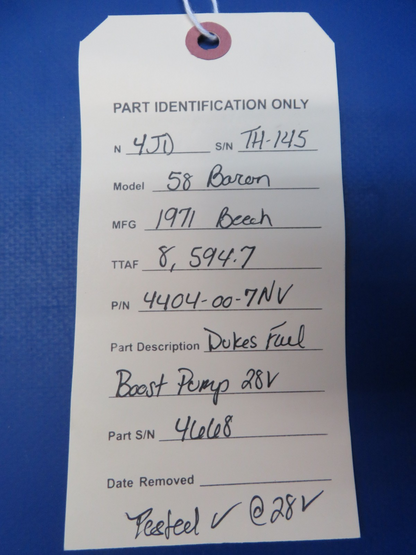 PART IDENTIFICATION ONLY
N 4JD S/N TH-145
Model 58 Baron
MFG 1971 Beech
TTAF 8,594.7
P/N 4404-00-7NV
Part Description Dukes Fuel
Boost Pump 28V
Part S/N 4668
Date Removed
Tested ✓ @ 28V